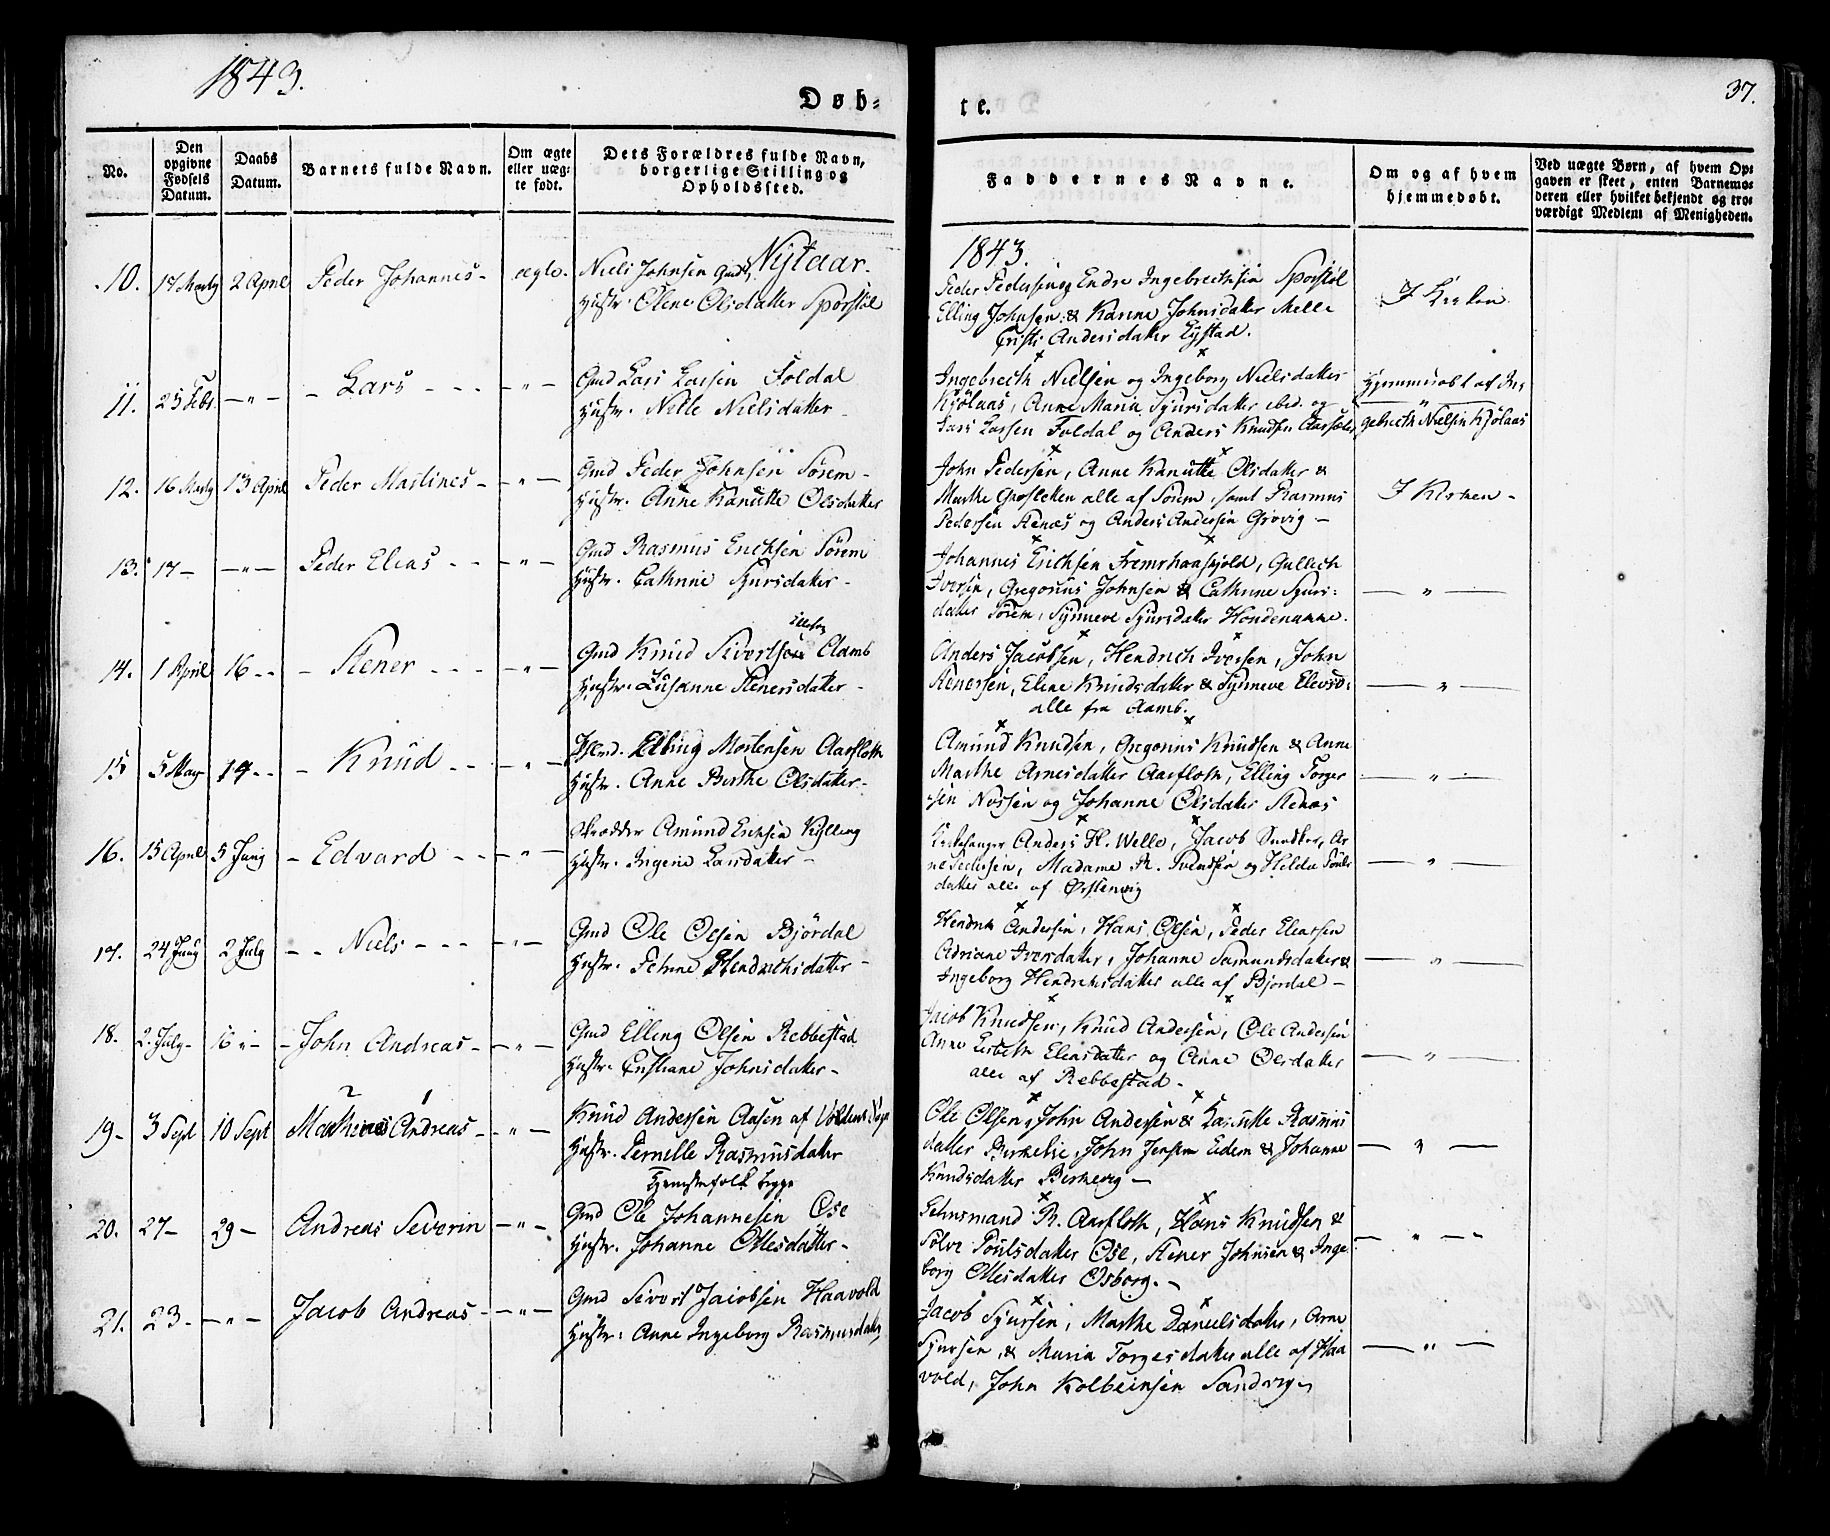 1843.
37.
Døb-
te.
No.
Den opgivne Fødsels Datum.
Daabs Datum.
Barnets fulde Navn.
Om ægte eller uægte født.
Dets Forældres fulde Navn, borgerlige Stilling og Opholdssted.
Faddernes Navne.
Om og af hvem hjemmedøbt.
Ved uægte Børn, af hvem Opgaven er skeet, enten Barnemoderen eller hvilket bekjendt og troværdigt Medlem af Menigheden.
Nytaar. 1843.
10. 17 Martz 2 April Peder Johannes - ægte. Niels Johnsen Gmd.
Hustr. Olene Olsdatter Sporstøl
Peder Pedersen og Endre Ingebrethsen Sporstøl
Elling Johnsen & Hanne Johnsdatter Melle
Andersdatter Eystad.
I Kirken
11. 25 Febr. - " - - Lars - - - - " - Gmd Lars Larsen Foldal
Hustr. Nille Nielsdatter -
Ingebreth Nielsen og Ingeborg Nielsdatter
Kjølaas, Anne Maria Sjursdatter ibid. og
Lars Larsen Foldal og Anders Knudsen Aarsæter
Hjemmedøbt af In-
gebreth Nielsen Kjølaas
12. 16 Martz 13 April Peder Martines - - " - Gmd Peder Johnsen Sørem -
Hustr. Anne Kanutte Olsdatter
John Pedersen, Anne Kanutte Olsdatter &
Marthe alle af Sørem, samt Rasmus
Pedersen Stenæs og Anders Andersen Grøvig -
I Kirken -
13. 17 - - " - Peder Elias - - - " - Gmd Rasmus Ericksen Sørem
Hustr. Cathrine Sjursdatter -
Johannes Erichsen Fremrhaaskjold, Gullich
Iversen, Gregorius Johnsen & Cathrine Sjurs-
datter Sørem, Synneve Sjursdatter
- " -
14. 1 April 16 - - - Stener - - - - " - Gmd Knud Sivertsen Aamb
Hustr. Susanne Stenersdatter -
Anders Jacobsen, Hendrich Iversen, John
Stenersen, Elene Knudsdatter & Synneve Elevsd.
alle fra Aamb.
- " -
15 5 May 14 - - - Knud - - - " - Elling Mortensen Aarfloth
Hustr. Anne Berthe Olsdatter -
Amund Knudsen, Gregorius Knudsen & Anne
Marthe Arnesdatter Aarfloth, Elling Torger
sen Nossen og Johanne Olsdatter Stenæs
- " -
16. 15 April 5 Juny - Edvard - - - " - Skrædder Amund Ericksen Kylling
Hustr. Ingerie Larsdatter -
Kirkesanger Anders H. Welle, Jacob Sundker, Ar
ne Pedersen, Madame R. Svendsen og Helda Pouls
datter alle af Ørstenvig
- " -
17. 24 Juny 2 July - - Niels - - - - " - Gmd Ole Olsen Bjørdal
Hustr. Hendrichsdatter -
Hendrik Andersen, Hans Olsen, Peder Eleassen
Adriane Iversdatter, Johanne Samundsdatter &
Ingeborg Hendrichsdatter alle af Bjørdal -
- " -
18. 2. July - 16 " - - John Andreas - - " - Gmd Elling Olsen Rebbestad
Hustr. Cristiane Johnsdatter -
Jacob Knudsen, Knud Andersen, Ole Andersen
Anne Lisbeth Eleasdatter og Anne Olsdatter
alle af Rebbestad -
- " -
19 - 3 Sept 10 Sept Andreas - - " - Knud Andersen Aasen af Voldens
Hustr. Pernelle Rasmusdatter
begge
Ole Olsen, John Andersen & Rasmus
datter Birkelie, John Jensen Eidem & Johanne
Knudsdatter Birkevig -
- " -
20. 27 - 29 - Andreas Severin - " - Gmd Ole Johannesen Ose
Hustr. Johanne Ollesdatter -
Lehnsmand R. Aarfloth, Hans Knudsen &
Sølvi Poulsdatter Ose, Stener Johnsen & Inge
borg Ollesdatter Osborg. -
- " -
21. 23 - - " - Jacob Andreas - - " - Gmd Sivert Jacobsen Haavold
Hustr: Anne Ingeborg Rasmusdatter
Jacob Sjursen, Marthe Danielsdatter, Arne
Sjursen, & Maria Torgersdatter alle af Haa
vold, John Kolbeinsen Sandvig -
- " -